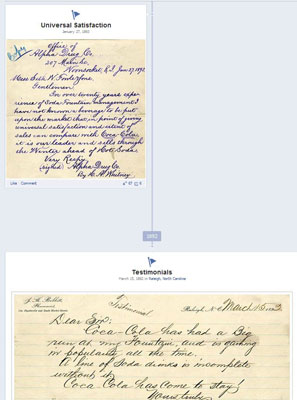 Universal Satisfaction
January 27, 1892
Office of
Alpha Drug Co.
207 Main St.
Woonsocket, R.I. Jan 27, 1892.
Gentlemen
For over twenty years expe-
rience of Soda Fountain management I
have not known a beverage to be put
upon the market that in point of giving
universal satisfaction and extent of
sales can compare with Coca-Cola
it is our leader and sells through
the Winter ahead of Hot Soda.
Very Resply
(signed) Alpha Drug Co.
By
Like Comment
1892
Testimonials
March 15, 1892 in Raleigh, North Carolina
Testimonial
Raleigh, N.C. March 15 1892
Dear Sir:
Coca-Cola has had a Big
run at my Fountain, and is gaining
in popularity all the time.
A line of Soda drinks is incomplete
without it.
Coca Cola has come to stay!
Yours truly,